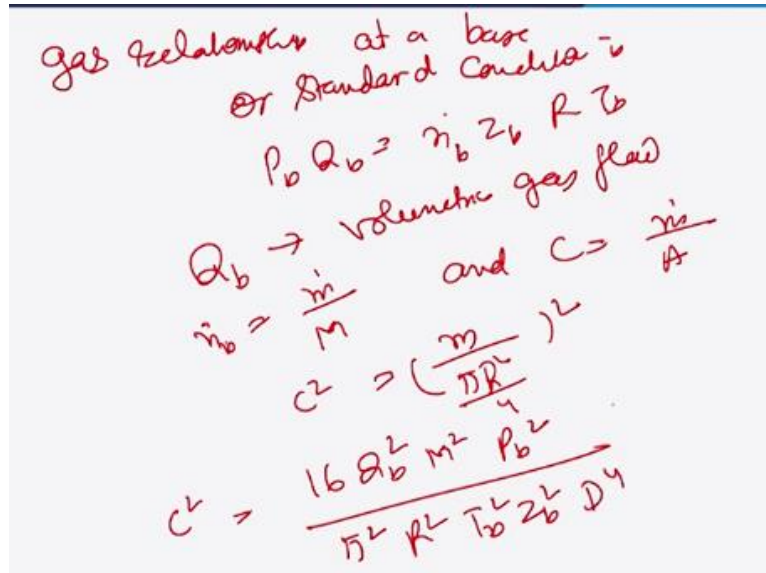 gas relationship at a base
or standard condition
P_b Q_b = ṅ_b z_b R T_b
Q_b → volumetric gas flow
ṅ_b = ṁ/M and C = ṁ/A
C² = (m/(πR²/4))²
C² = 16 Q_b² M² P_b² / π² R² T_b² z_b² D⁴